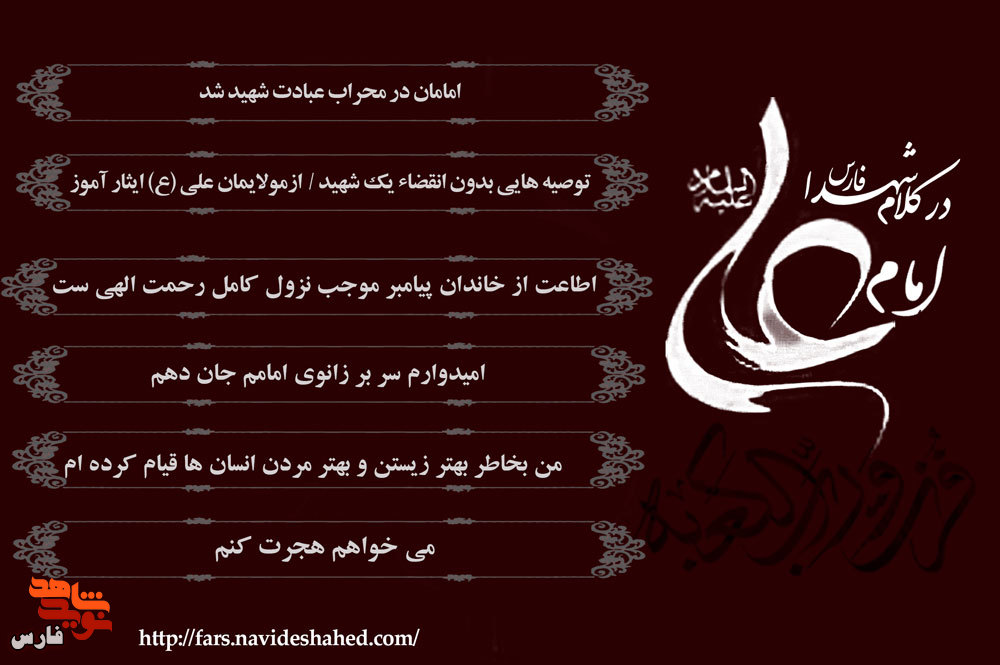 در کلام شهدا فارس
امام علی
علیه السلام
امامان در محراب عبادت شهید شد
توصیه هایی بدون انقضاء یک شهید / ازمولایمان علی (ع) ایثار آموز
اطاعت از خاندان پیامبر موجب نزول کامل رحمت الهی ست
امیدوارم سر بر زانوی امامم جان دهم
من بخاطر بهتر زیستن و بهتر مردن انسان ها قیام کرده ام
می خواهم هجرت کنم
فزت و رب الکعبه
نوید شاهد
فارس
http://fars.navideshahed.com/